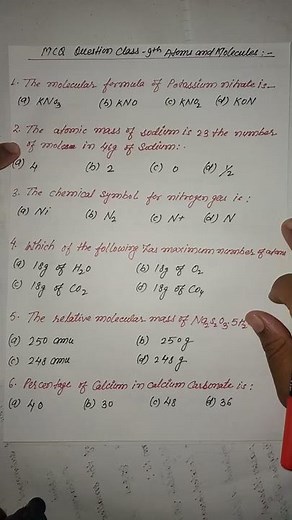 MCQ Question Class-9th Atoms and Molecules :-
1. The molecular formula of Potassium nitrate is-
(a) KNO3 (b) KNO (c) KNO2 (d) KON
2. The atomic mass of sodium is 23 the number
of moles in 46g of Sodium:-
(a) 4 (b) 2 (c) 0 (d) 1/2
3. The chemical symbol for nitrogen gas is :
(a) Ni (b) N2 (c) N+ (d) N
4. Which of the following has maximum number of atoms
(a) 18g of H2O (b) 18g of O2
(c) 18g of CO2 (d) 18g of CO4
5. The relative molecular mass of Na2S2O3.5H2
(a) 250 amu (b) 250g
(c) 248 amu (d) 248 g
6. Percentage of Calcium in calcium Carbonate is :
(a) 40 (b) 30 (c) 48 (d) 36